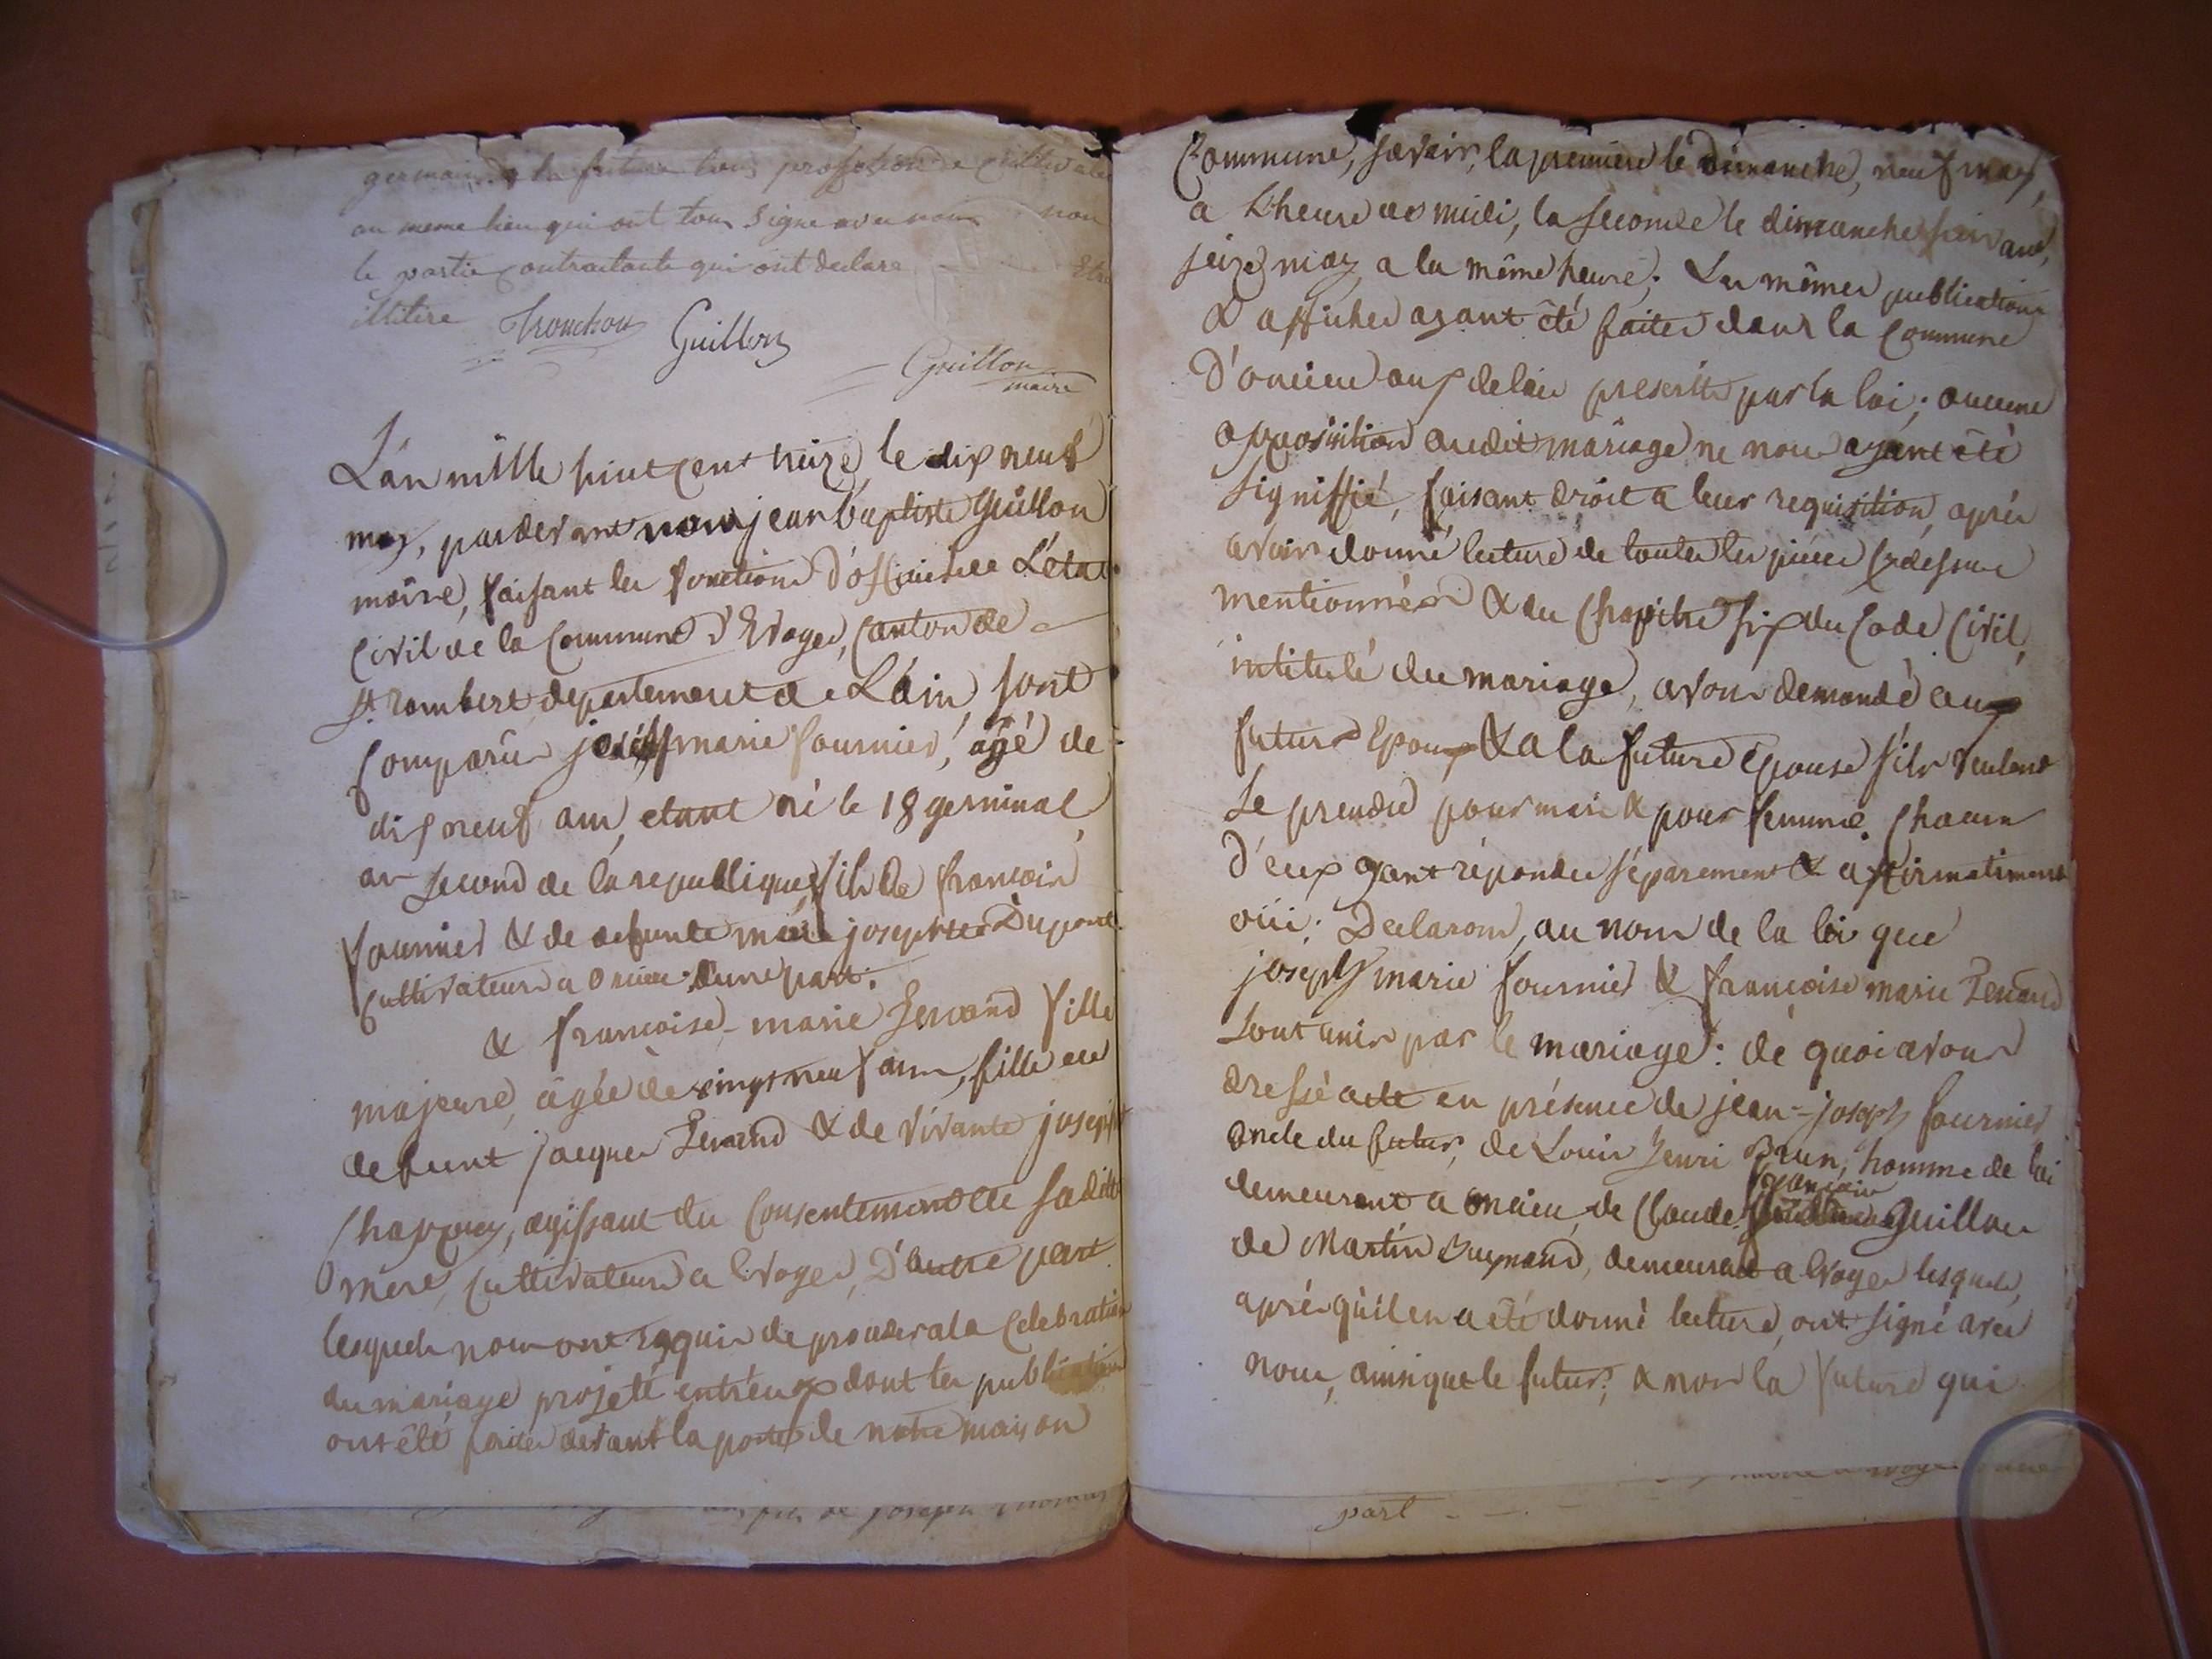 germain de la future tous profession de cultivate
au meme lieu qui ont tous signe avec nous non
le partie contractante qui ont declare Etre
illitere Tronchon Guillon
Guillon
maire
L'an mille huit cent treize, le dix neuf
may, pardevant nous jean baptiste Guillon
maire, faisant les fonctions d'officier de L'état
Civil de la Commune d'Evoges, Canton de
St. rambert departement de L'ain sont
Comparus joseph marie fournier, agé de
dix neuf ans, etant né le 18 germinal
an second de la republique, fils de françois
fournier & de defunte josephte Dupont
Cultivateurs a Oncieu d'une part.
& françoise-marie Jenand fille
majeure, agée de vingt neuf ans, fille de
defunt jacques Jenand & de vivante joseph
Chappuy, agissant du Consentement de sadite
mere, Cultivateurs a Evoges, D'autre part
lesquels nous ont requis de proceder a la Celebration
du mariage projeté entr'eux dont les publications
ont été faites devant la porte de notre maison
Commune, savoir, la premiere le dimanche, neuf may,
a L'heure de midi, la seconde le dimanche suivant,
seize may a la même heure; Les mêmes publications
& affiches ayant été faites dans la Commune
D'oncieu aux delais prescrits par la loi; aucune
opposition audit mariage ne nous ayant été
signiffié, faisant droit a leur requisition, après
avoir donné lecture de toutes les pieces Cydessus
mentionnées & du Chapitre six du Code Civil,
intitulé du mariage, avons demandé aux
futurs Epoux & a la future épouse s'ils veulent
se prendre pour mari & pour femme. Chacun
D'eux ayant répondu séparement & affirmatiment
oüi; Declarons, au nom de la loi que
joseph marie fournier & françoise marie Jenand
sont unis par le mariage: de quoi avons
dressé acte en présence de jean-joseph fournier
oncle du futur, de Louis henri Brun, homme de loi
demeurant a oncieu, de Claude françois Guillon
de Martin Buynand, demeurant a Evoges lesquels,
aprés qu'il en a été donné lecture, ont signé avec
nous, ainsi que le futur, & non la future qui
fils de joseph thomas
part